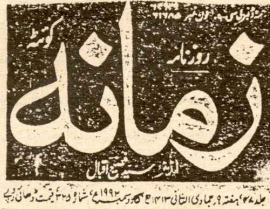 کوئٹہ
روزنامہ
زمانہ
ایڈیٹر سید فصیح اقبال
جلد ۲۸ ہفتہ ۹ جمادی الثانی ۱۴۱۳ھ ۵ دسمبر ۱۹۹۲ء شمارہ ۳۲۱ قیمت ڈھائی روپے